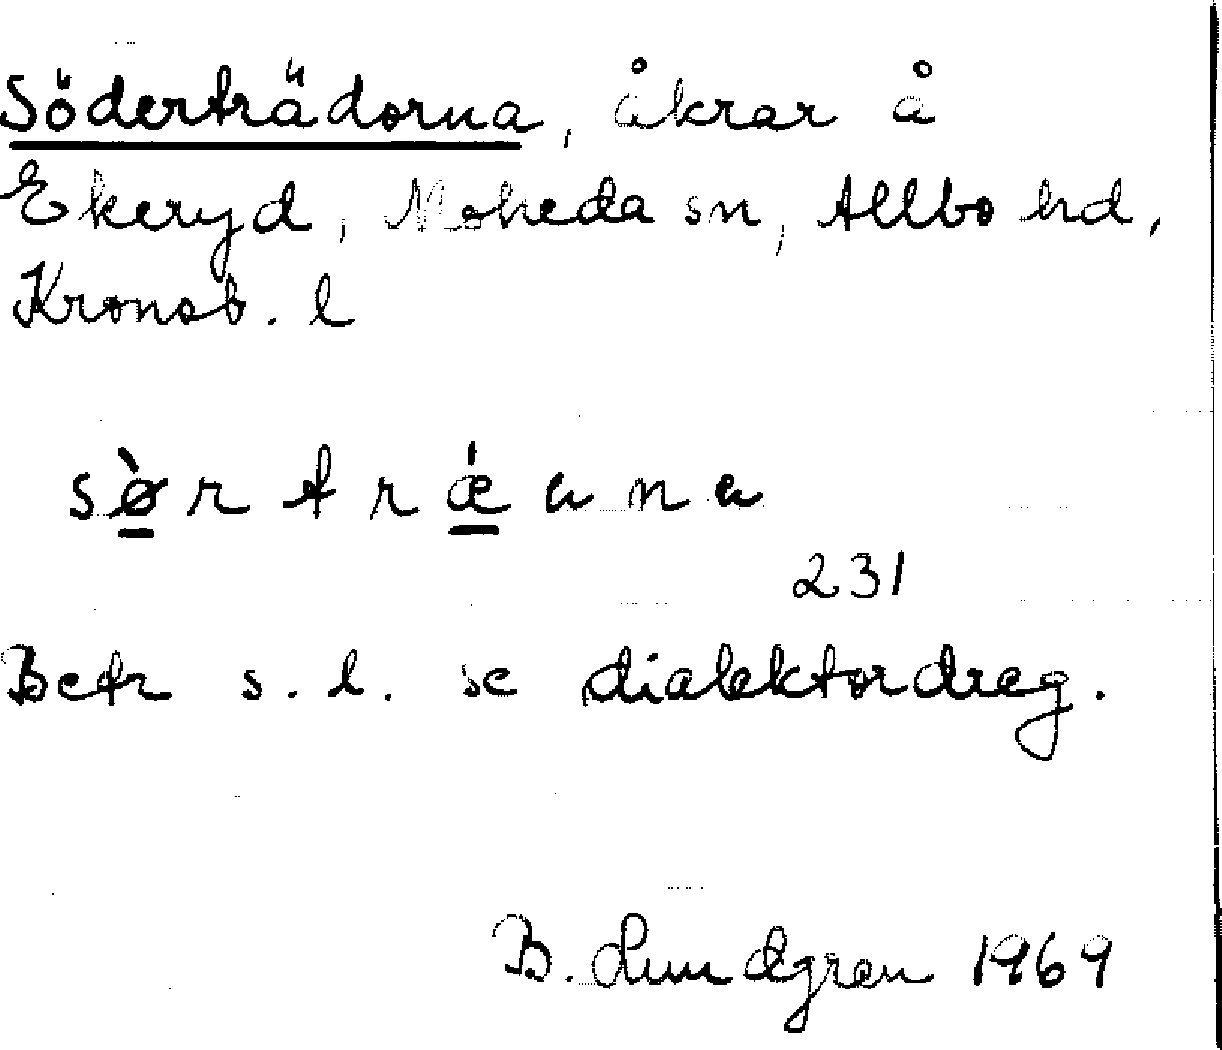 Söderträdorna, åkrar å
Ekeryd, Moheda sn, Allbo hd,
Kronob. l
sø̀rtrǽana
231
Betr s. l. se dialektordreg.
B. Lundgren 1969